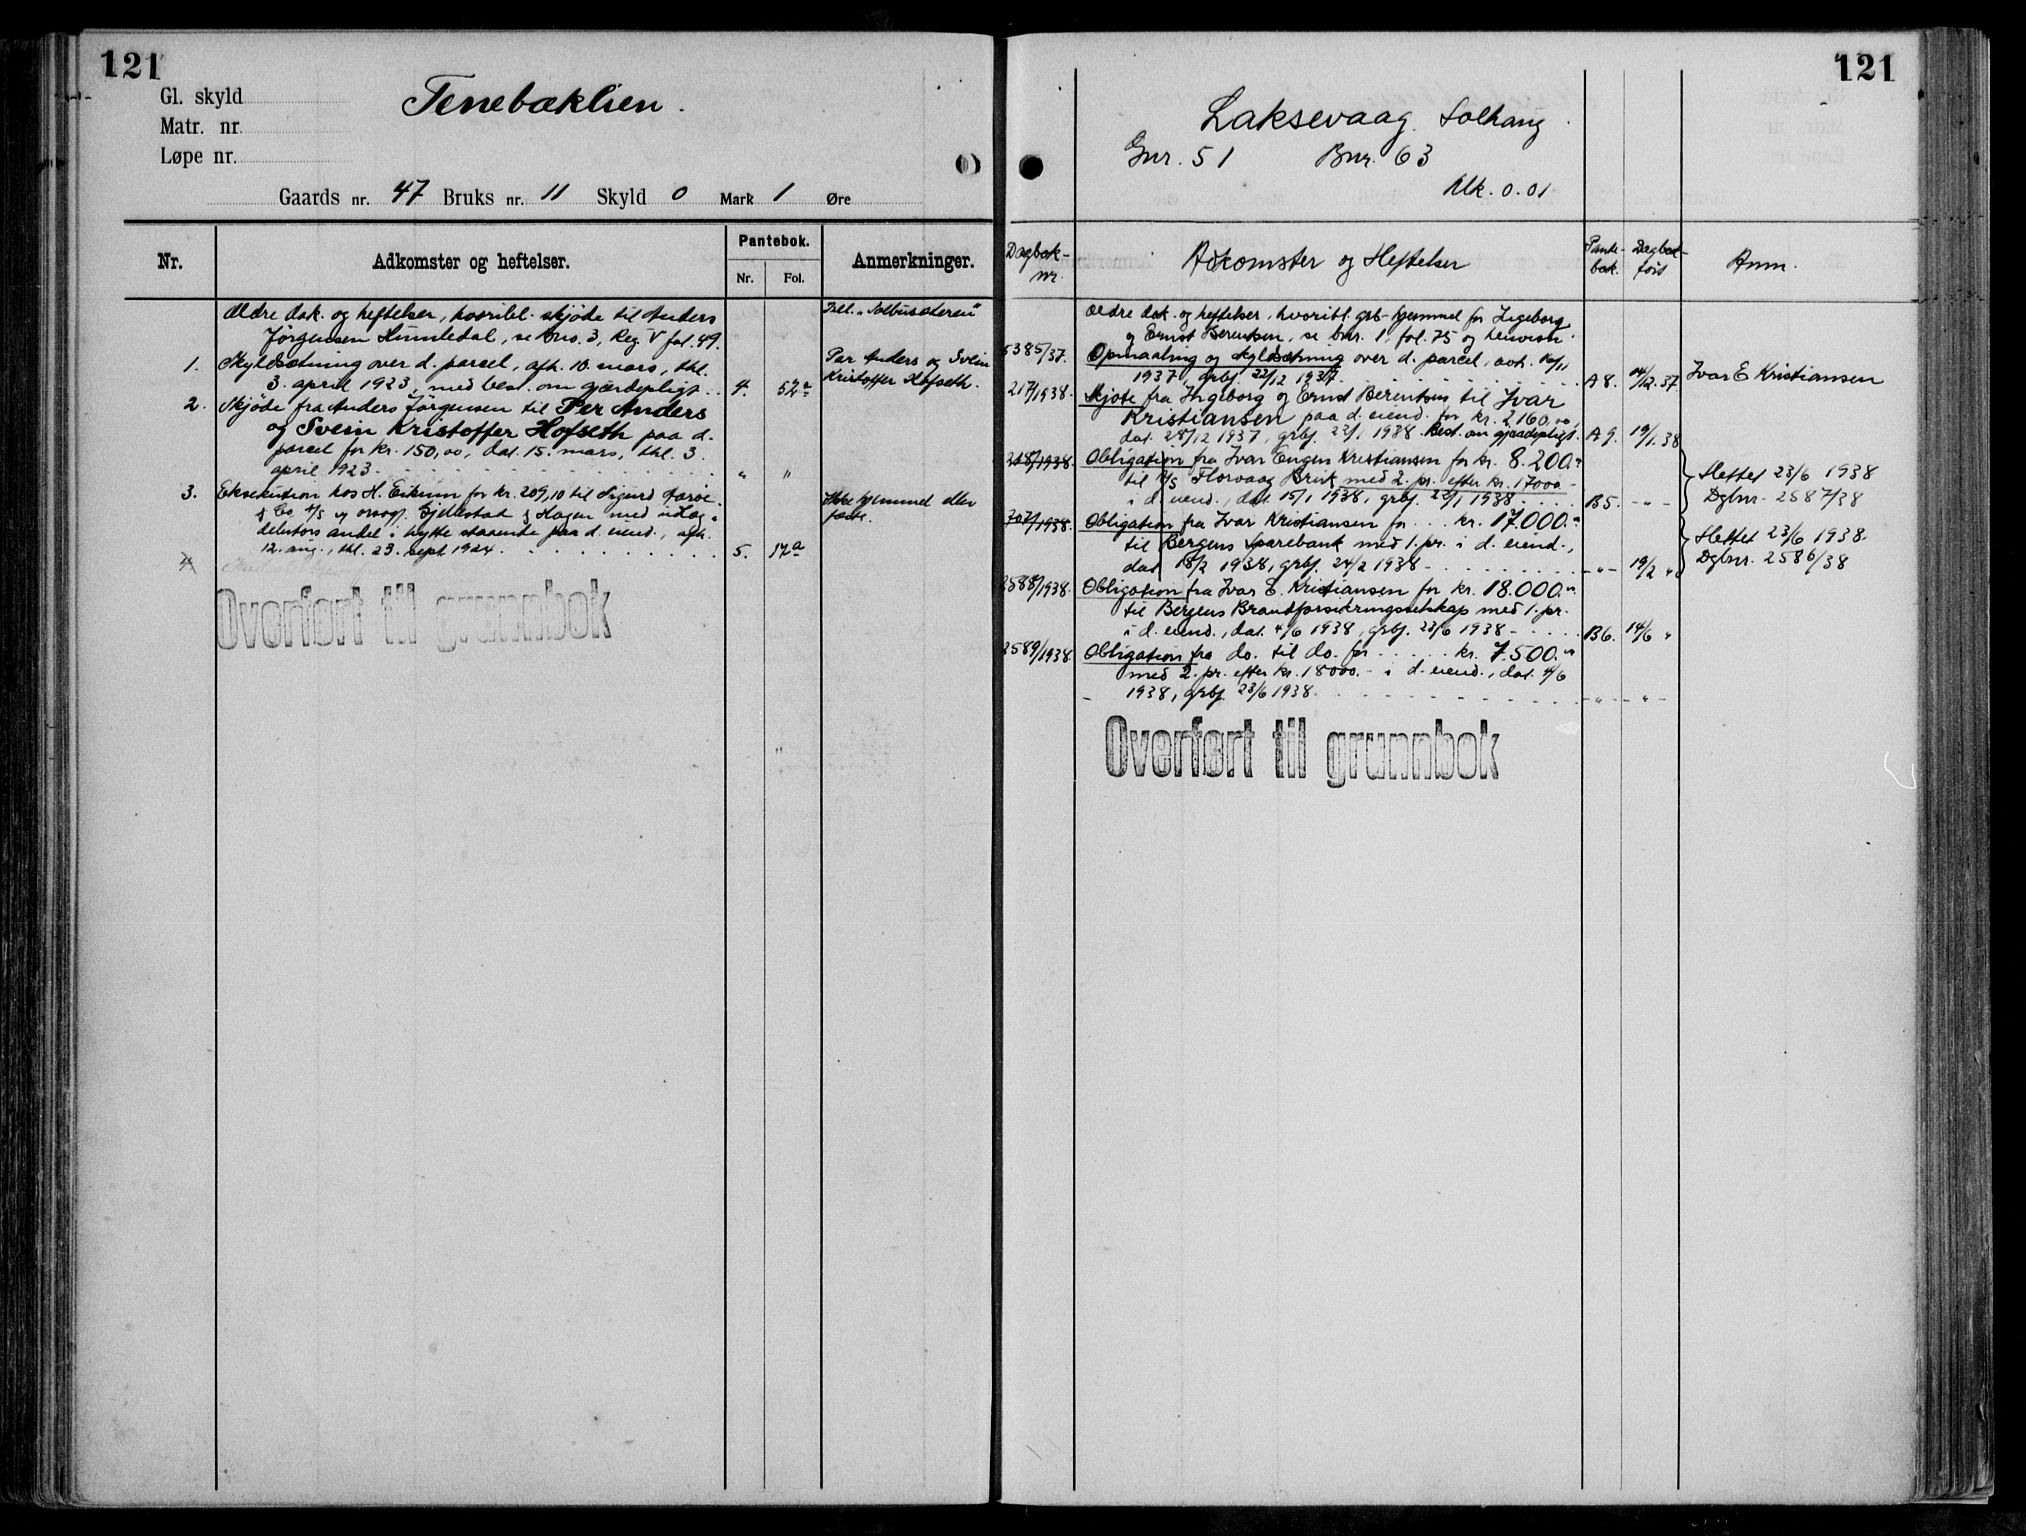 121
Gl. skyld
Matr. nr.
Løpe nr.
Tenebæklien.
Gaards nr. 47 Bruks nr. 11 Skyld 0 Mark 1 Øre
Nr.
Adkomster og heftelser.
Pantebok.
Nr. Fol.
Anmerkninger.
Ældre dok. og heftelser, hvoribl. skjøde til Anders
Jørgensen Humledal, se bno. 3, Reg. V fol. 49.
1. Skyldsætning over d. parcel, afh. 10. mars, thl.
3. april 1923, med best. om gjærdepligt . . 4. 52a
2. Skjøde fra Anders Jørgensen til Per Anders
og Svein Kristoffer Hofseth paa d.
parcel for kr. 150,00, dat. 15. mars, thl. 3.
april 1923. " "
3. Eksekution hos H. Eikum for kr. 209,10 til Sigurd
& Co A/S og Gjellestad & Hagen med utlæg i
debitors andel i hytte staaende paa d. eiend., afh.
12. aug., thl. 23. sept 1924. 5. 17a
4
Fæll. "
Per Anders og Svein
Kristoffer Hofseth.
Ikke hjemmel eller
Overført til grunnbok
121
Laksevaag. Solhaug
Gnr. 51 Bnr. 63
Mk. 0.01
Dagbok-
nr.
Adkomster og Heftelser
Pante-
bok.
Dagbok-
ført
Anm.
Ældre dok. og heftelser, hvoribl. grb. hjemmel for Ingeborg
og Ernst Berentsen, se bnr. 1, fol. 75 og henvisn.
5385/37. Opmaaling og skyldsætning over d. parcel, avh. 16/11
1937, grbf. 22/12 1937. A 8. 14/12.37 Ivar E Kristiansen
217/1938. Skjøte fra Ingeborg og Ernst Berentsen til Ivar
Kristiansen paa d. eiend. for kr. 2.160,00,
dat. 28/12 1937, grbf. 22/1 1938. Best. om gjærdepligt. A 9. 19/1.38
218/1938. Obligation fra Ivar Eugen Kristiansen for kr. 8.200.-
til A/S Florvaag Bruk med 2. pr. efter kr. 17000.-
i d. eiend., dat. 15/1 1938, grbf. 22/1 1938 B5. - " -
Slettet 23/6 1938
Dgbnr. 2587/38
707/1938. Obligation fra Ivar Kristiansen for kr. 17.000.-
til Bergens Sparebank med 1. pr. i d. eiend.,
dat. 18/2 1938, grbf. 24/2 1938 - " - 19/2 "
Slettet 23/6 1938.
Dgbnr. 2586/38
2588/1938. Obligation fra Ivar E. Kristiansen for kr. 18.000.-
til Bergens Brandforsikringsselskap med 1. pr.
i d. eiend., dat. 4/6 1938, grbf. 23/6 1938 - B6. 14/6 "
2589/1938. Obligation fra do. til do. for kr. 7.500.-
med 2. pr. efter kr. 18000.- i d. eiend., dat. 4/6
1938, grbf. 23/6 1938. - " - - " -
Overført til grunnbok